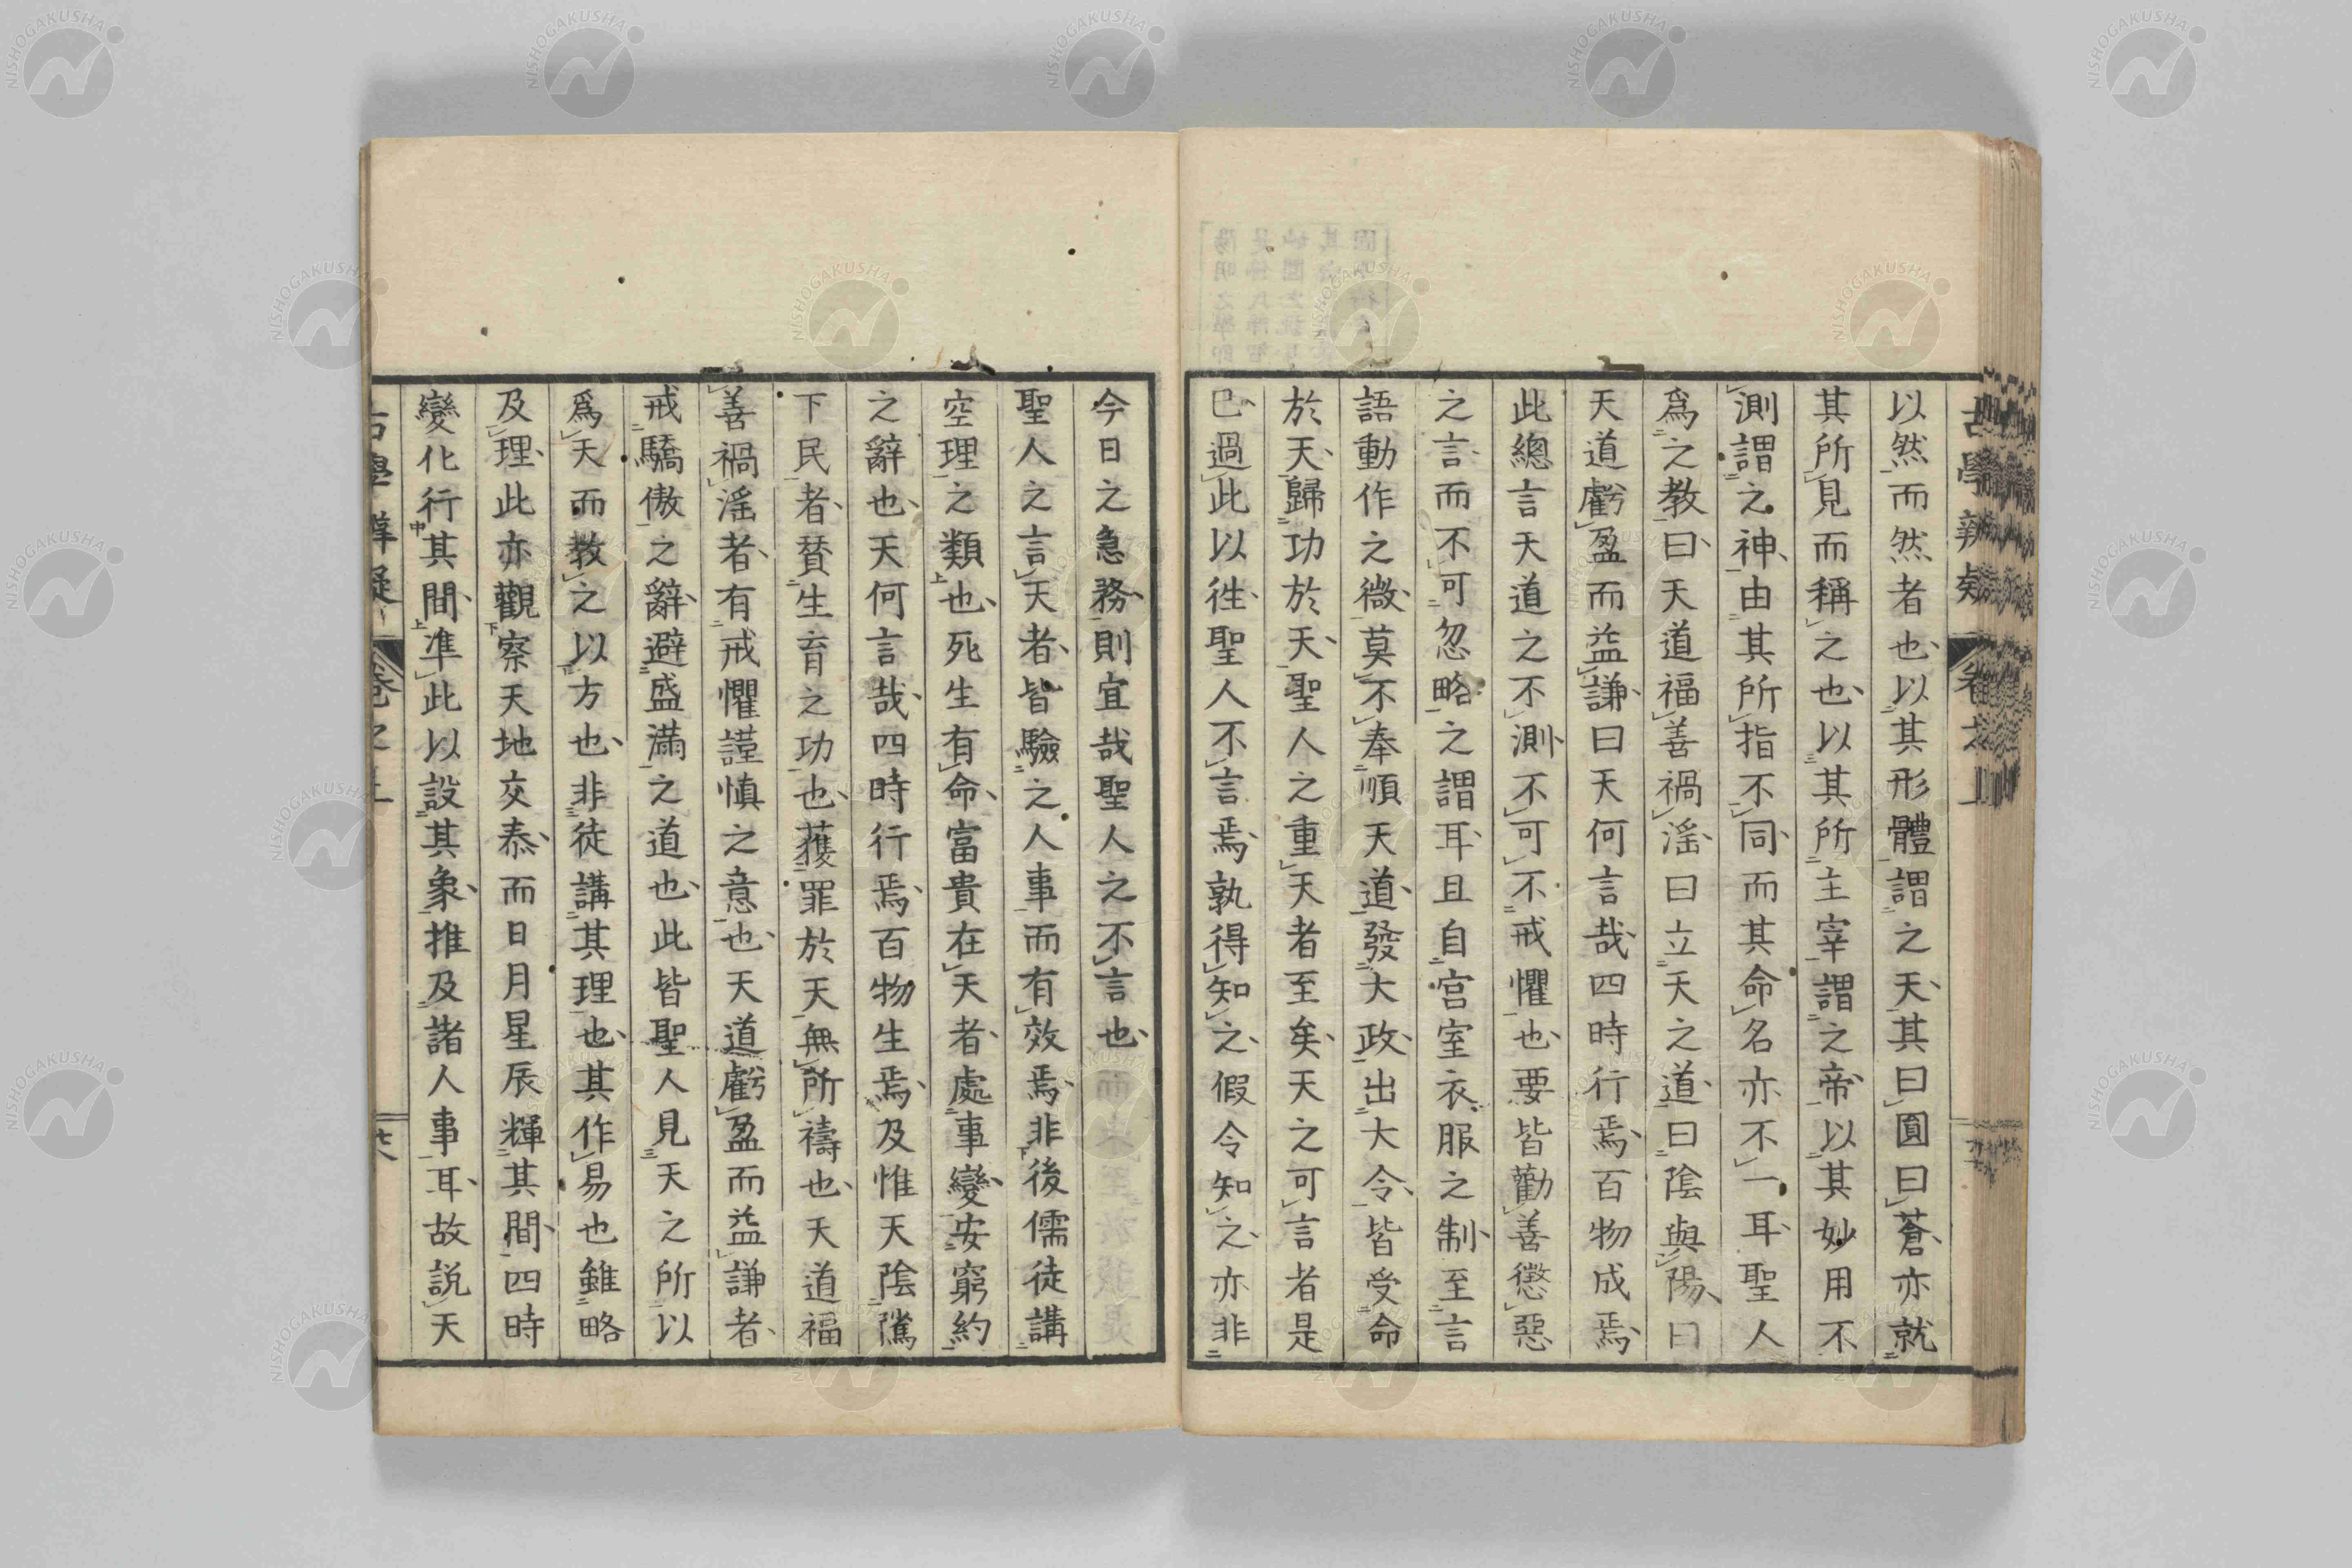 以然而然者也以其形體謂之天其曰圓曰蒼亦就
其所見而稱之也以其所主宰謂之帝以其妙用不
測謂之神由其所指不同而其命名亦不一耳聖人
爲之教曰天道福善禍淫曰立天之道曰陰與陽曰
天道虧盈而益謙曰天何言哉四時行焉百物成焉
此總言天道之不測不可不戒懼也要皆勸善懲惡
之言而不可忽略之謂耳且自宮室衣服之制至言
語動作之微莫不奉順天道發大政出大令皆受命
於天歸功於天聖人之重天者至矣天之可言者是
已過此以往聖人不言焉孰得知之假令知之亦非
今日之急務則宜哉聖人之不言也
聖人之言天者皆驗之人事而有效焉非後儒徒講
空理之類也死生有命富貴在天者處事變安窮約
之辭也天何言哉四時行焉百物生焉及惟天陰騭
下民者賛生育之功也獲罪於天無所禱也天道福
善禍淫者有戒懼謹慎之意也天道虧盈而益謙者
戒驕傲之辭避盛滿之道也此皆聖人見天之所以
爲天而教之以方也非徒講其理也其作易也雖略
及理此亦觀察天地交泰而日月星辰輝其間四時
變化行其間準此以設其象推及諸人事耳故説天
NISHOGAKUSHA